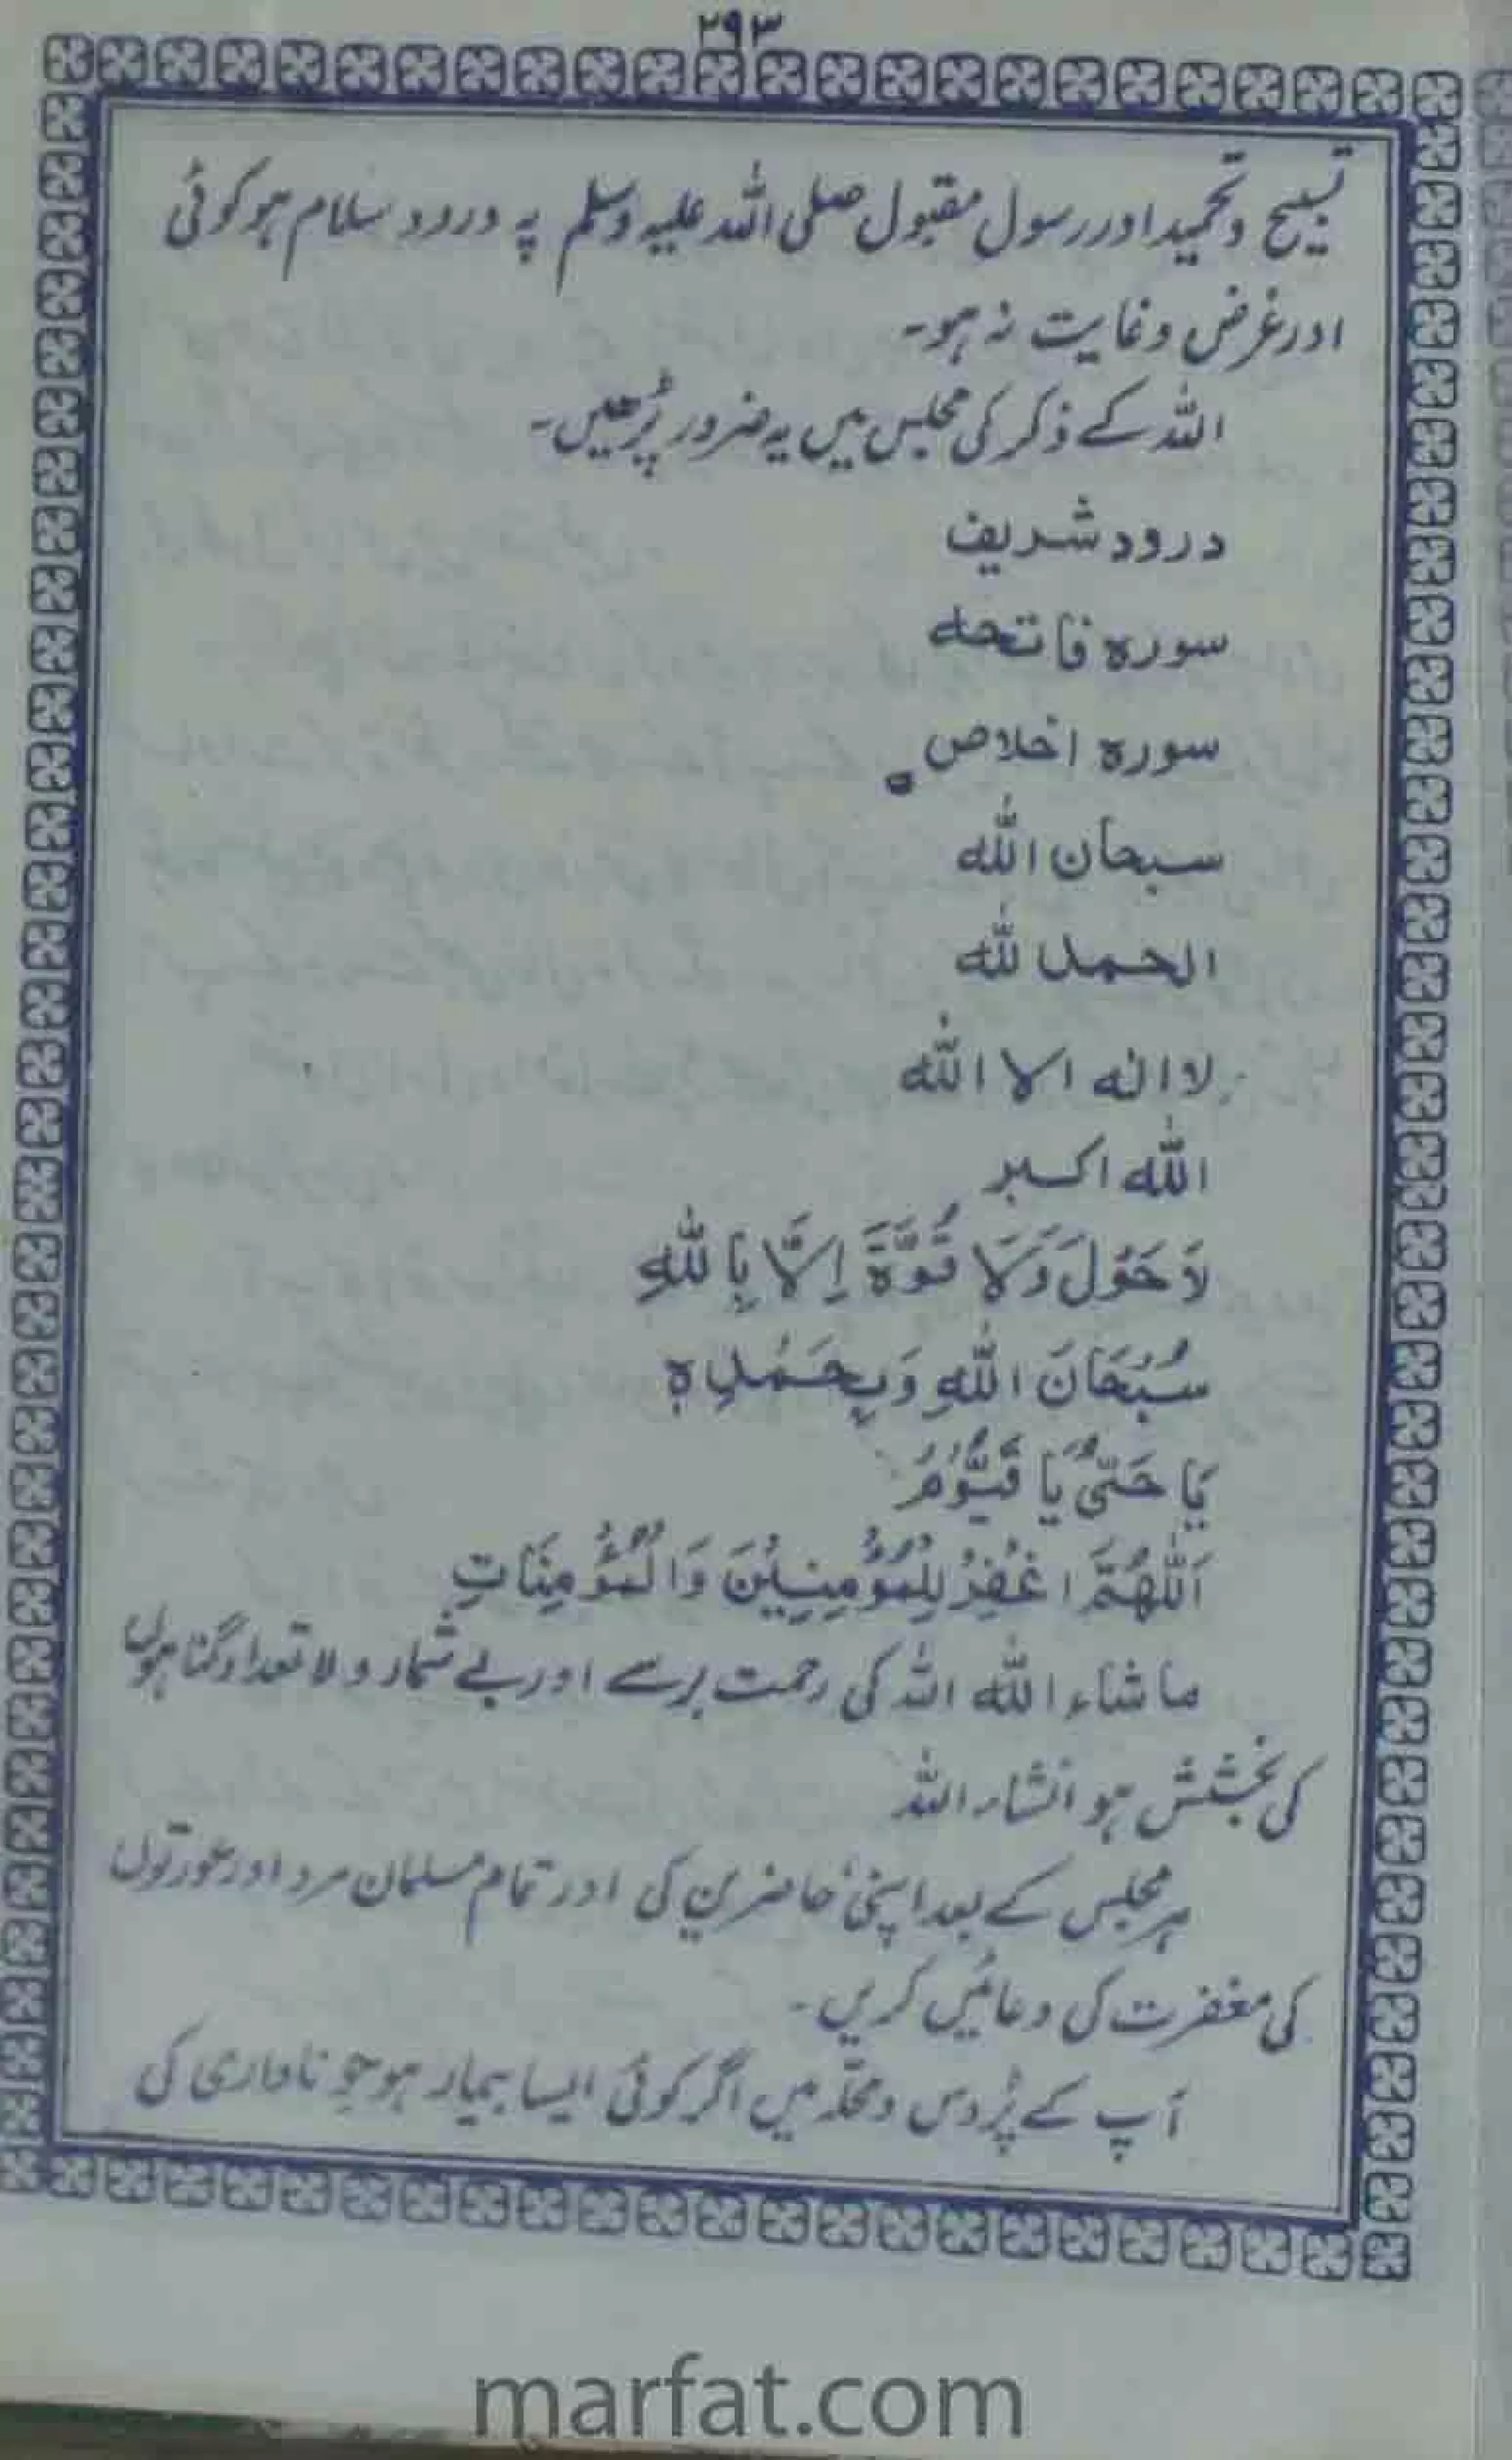 ۲۹۳
تسبیح و تحمید اور رسول مقبول صلی اللہ علیہ وسلم پہ درود سلام ہو کوئی
اور غرض و غایت نہ ہو۔
اللہ کے ذکر کی مجلس میں یہ ضرور پڑھیں۔
درود شریف
سورہ فاتحہ
سورہ اخلاص
سبحان اللہ
الحمد للہ
لا الہ الا اللہ
اللہ اکبر
لَا حَوْلَ وَلَا قُوَّةَ إِلَّا بِاللّٰهِ
سُبْحَانَ اللّٰهِ وَبِحَمْدِهٖ
يَا حَيُّ يَا قَيُّوْمُ
اَللّٰهُمَّ اغْفِرْ لِلْمُؤْمِنِيْنَ وَالْمُؤْمِنَاتِ
ما شاء اللہ اللہ کی رحمت برسے اور بے شمار و لا تعداد گناہوں
کی بخشش ہو انشاء اللہ
ہر مجلس کے بعد اپنی حاضرین کی اور تمام مسلمان مرد اور عورتوں
کی مغفرت کی دعائیں کریں۔
آپ کے پڑوس و محلّہ میں اگر کوئی ایسا بیمار ہو جو ناداری کی
marfat.com